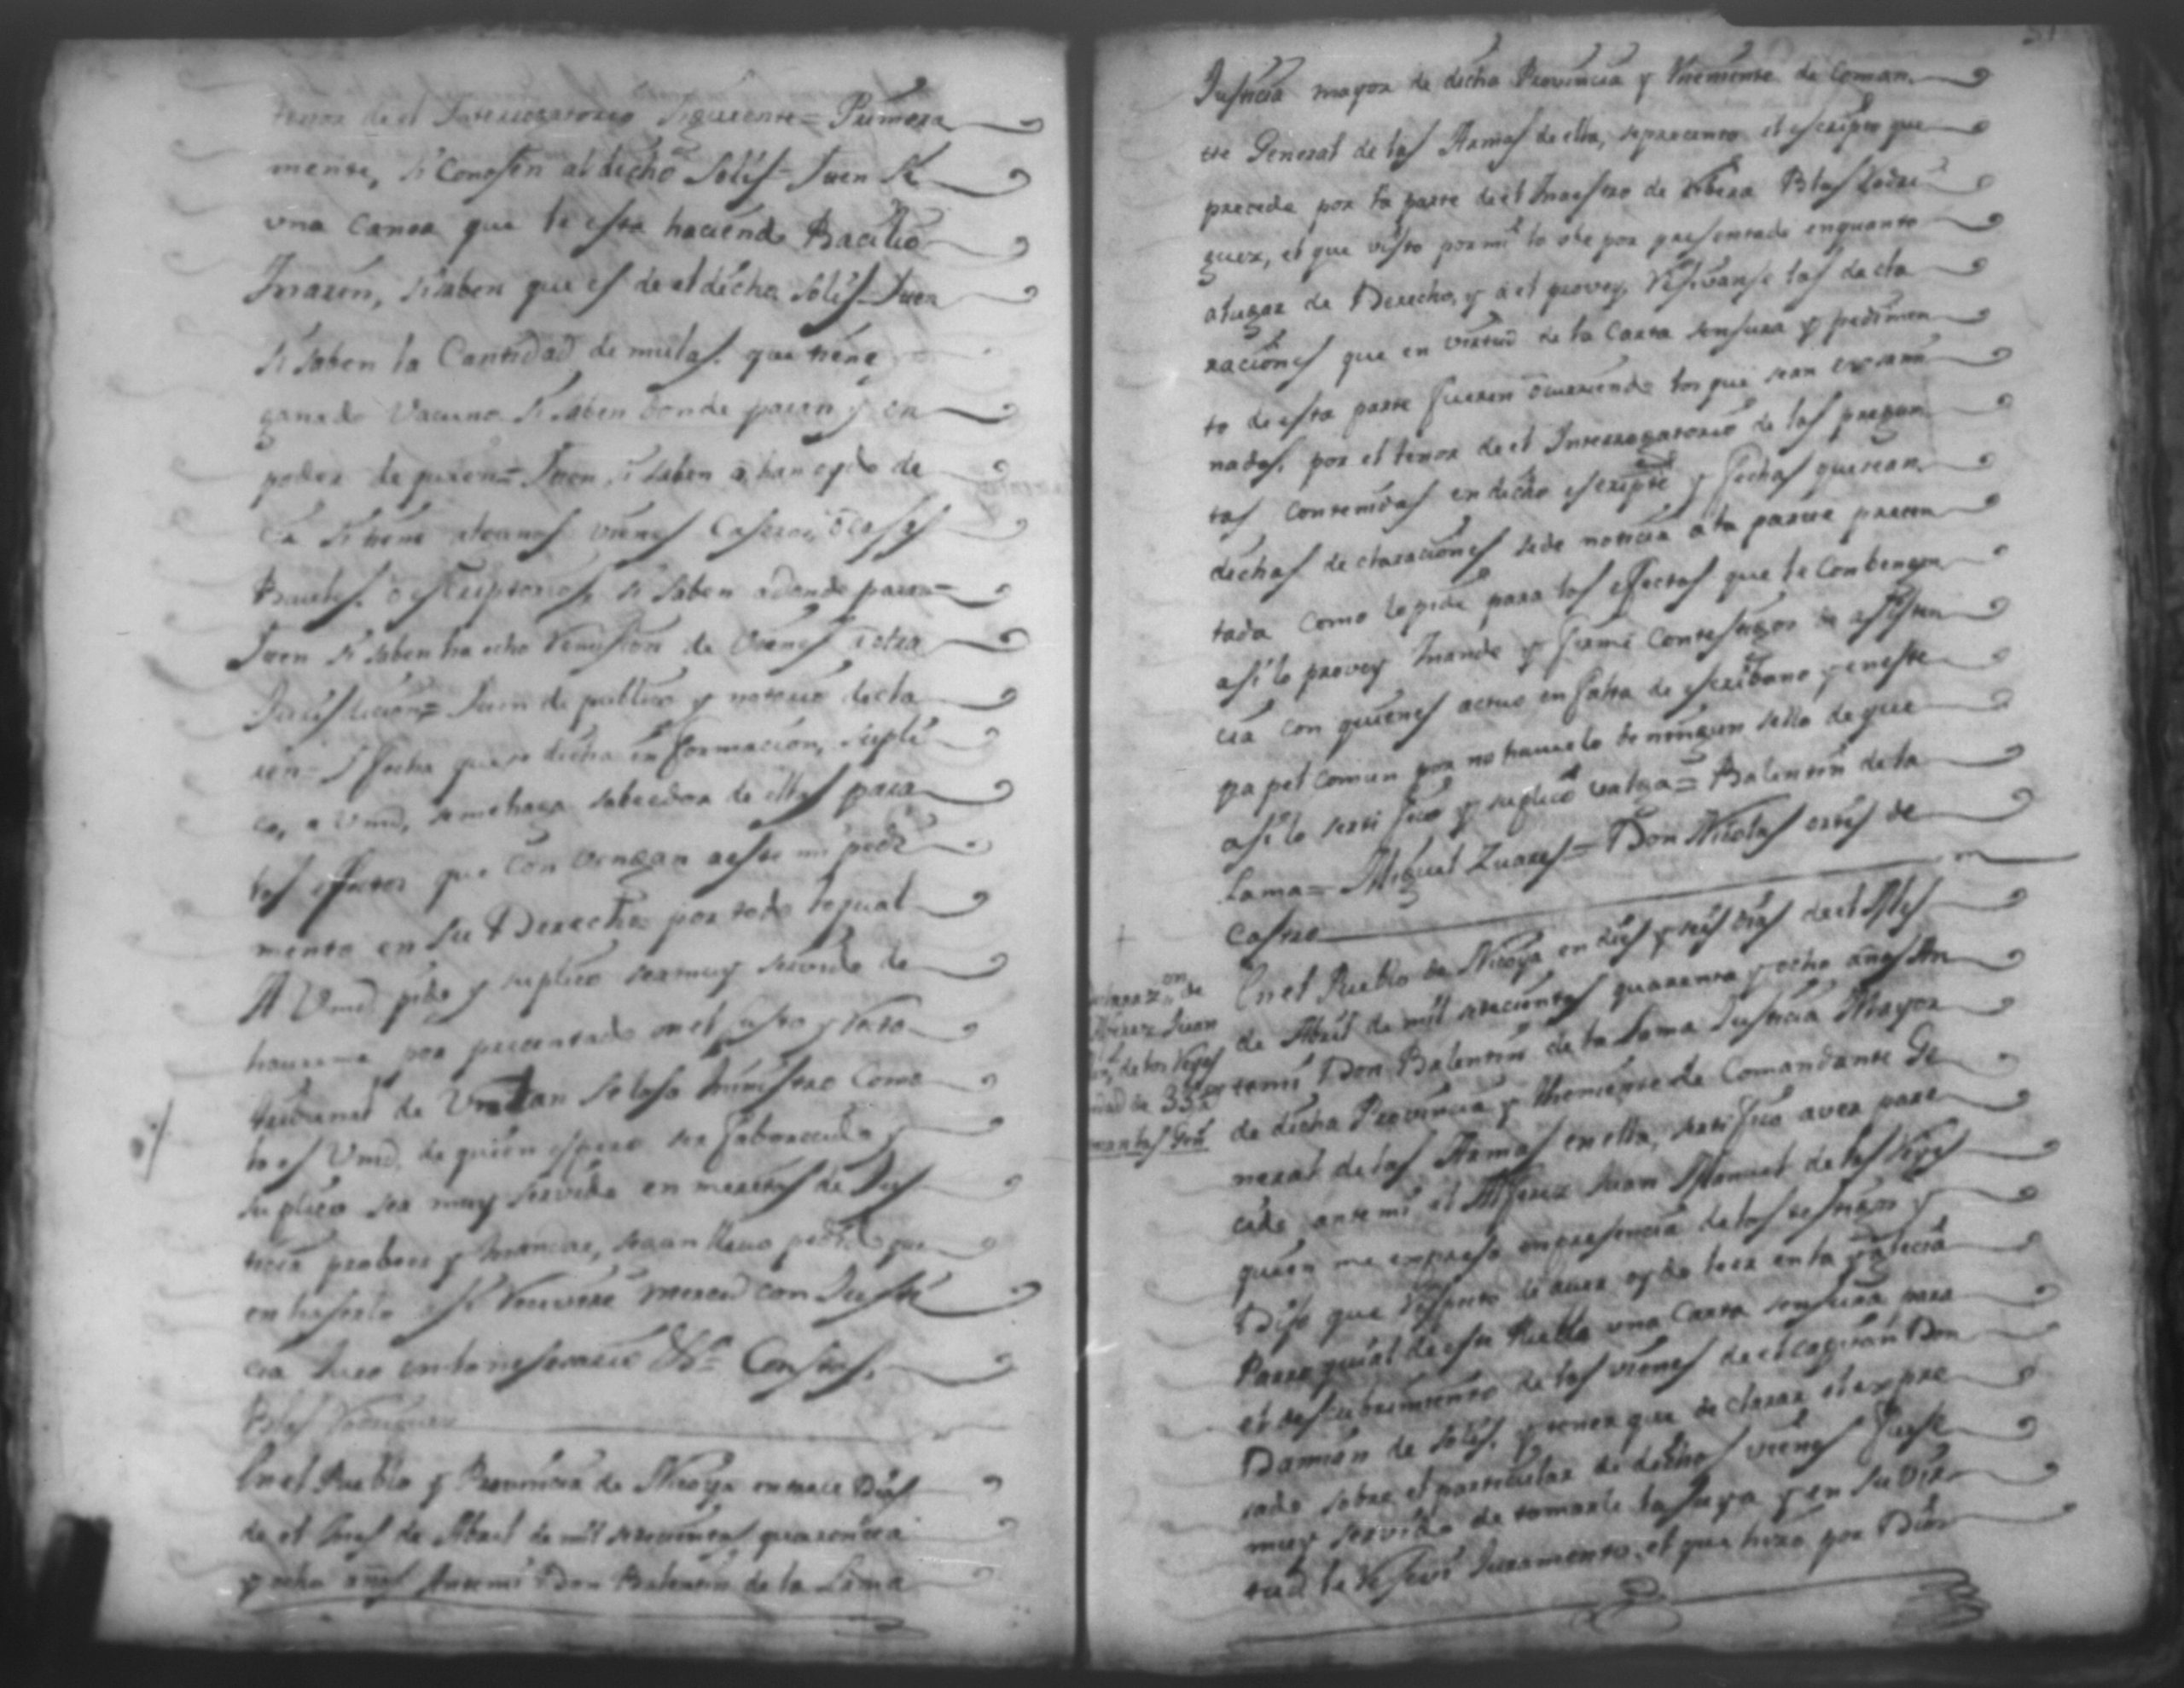 tenor de el Interrogatorio siguiente= Primera
mente, si Conosen al dicho Solis= Iten si
una Canoa que le esta haciendo Bacilio
Marin, si saben que es de el dicho Solis= Iten
si saben la Cantidad de mulas que tiene
ganado Vacuno si saben donde paran y en
poder de quien= Iten, si saben o han oydo de
cir si tiene algunos vienes Caseros, o Caxas
Baules, o escriptorios, si saben adonde paran=
Iten si saben ha echo remision de Vienes a otra
Jurisdicion= Iten de publico y notorio decla
ren= I fecha que se dicha informacion, supli
co, a Vmd, se me haga sabeedor de ellas para
los efectos que Con vengan a este mi pedi
mento en su Derecho por todo lo qual
A Vmd pido y suplico sea muy servido de
hauerme por precentado en el justo y recto
tribunal de Vmd tan seloso ministro Como
lo es Vmd, de quien espero ser faborecido y
suplico sea muy servido en meritos de Jus
ticia probeer y mandar, segun lleuo pedido que
en haserlo asi reciviré merced con Justi
cia Juro en lo nesesario &a Costas,
Blas Rodriguez
En el Pueblo y Provincia de Nicoya en trece Dias
de el mes de Abril de mill setecientos quarenta
y ocho años Antemi Don Balentin de la Lama
Justicia mayor de dicha Provincia y Theniente de Coman
te General de las Armas de ella, se precento el escripto que
precede por la parte de el Maestro de Ribera Blas Rodri
guez, el que visto por mi lo ube por presentado en quanto
a lugar de Derecho, y a el provey Resivanse las decla
raciones que en virtud de la Carta sensura y pedimen
to de esta parte fueren ocurriendo los que sean exsami
nados, por el tenor de el Interrogatorio de las pregun
tas Contenidas en dicho escripto y fechas que sean
dichas declaraciones se de noticia a la parte precen
tada Como lo pide para los efectos que le Conbengan
asi lo provey mande y firmé Con testigos de asisten
cia con quienes actuo en falta de escribano y en este
papel comun por no hauerlo de ningun sello de que
asi lo sertifico y suplico valga= Balentin de la
Lama= Miguel Zuares= Don Nicolas ortis de
Castro
En el Pueblo de Nicoya en dies y seis dias de el Mes
de Abril de mill setecientos quarenta y ocho años An
temi Don Balentin de la Lama Justicia Mayor
de dicha Provincia y Theniente de Comandante Ge
neral de las Armas en ella, sertifico aver pare
cido ante mi el Alferez Juan Manuel de los Reyes
quien me expreso en presencia de los testigos y
Dijo que respecto de auer oydo leer en la Yglecia
Parroquial de este Pueblo una Carta sensura para
el descubrimiento de los vienes de el Capitan Don
Damian de Solis, y tener que declarar el expre
sado sobre el particular de dichos vienes fuese
muy servido de tomarle la suya y en su Vir
tud le resevi Juramento, el que hizo por Dios
on de
Juan
de los Reyes
dad de 33 a